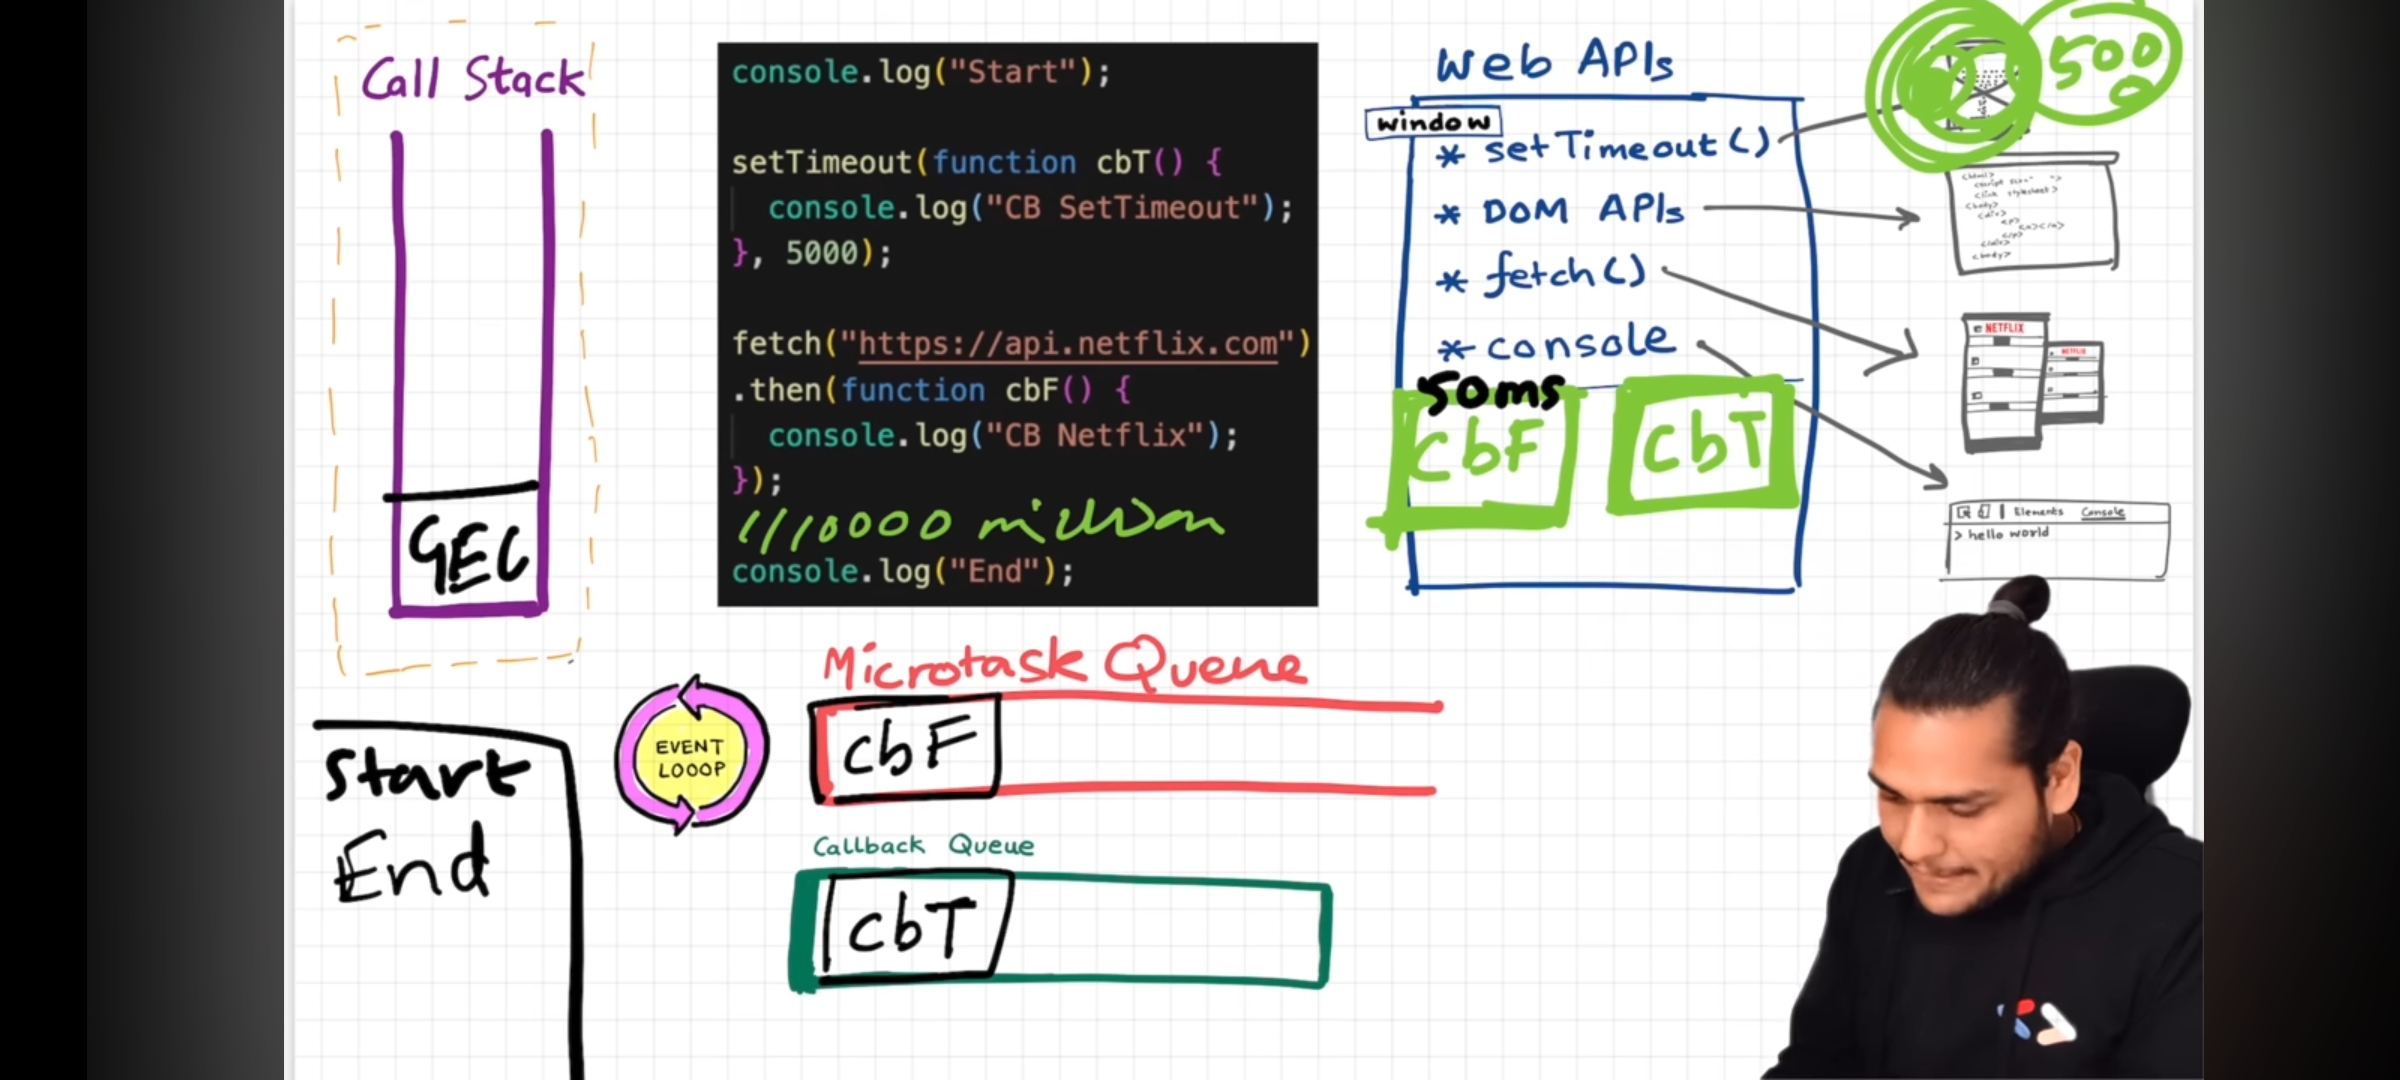 Call Stack
GEC
console.log("Start");
setTimeout(function cbT() {
console.log("CB SetTimeout");
}, 5000);
fetch("https://api.netflix.com")
.then(function cbF() {
console.log("CB Netflix");
});
///10000 million
console.log("End");
Web APIs
window
* setTimeout()
* DOM APIs
* fetch()
* console
50ms
cbF
cbT
500
NETFLIX
NETFLIX
Elements Console
> hello world
Microtask Queue
cbF
EVENT
LOOOP
Callback Queue
cbT
Start
End